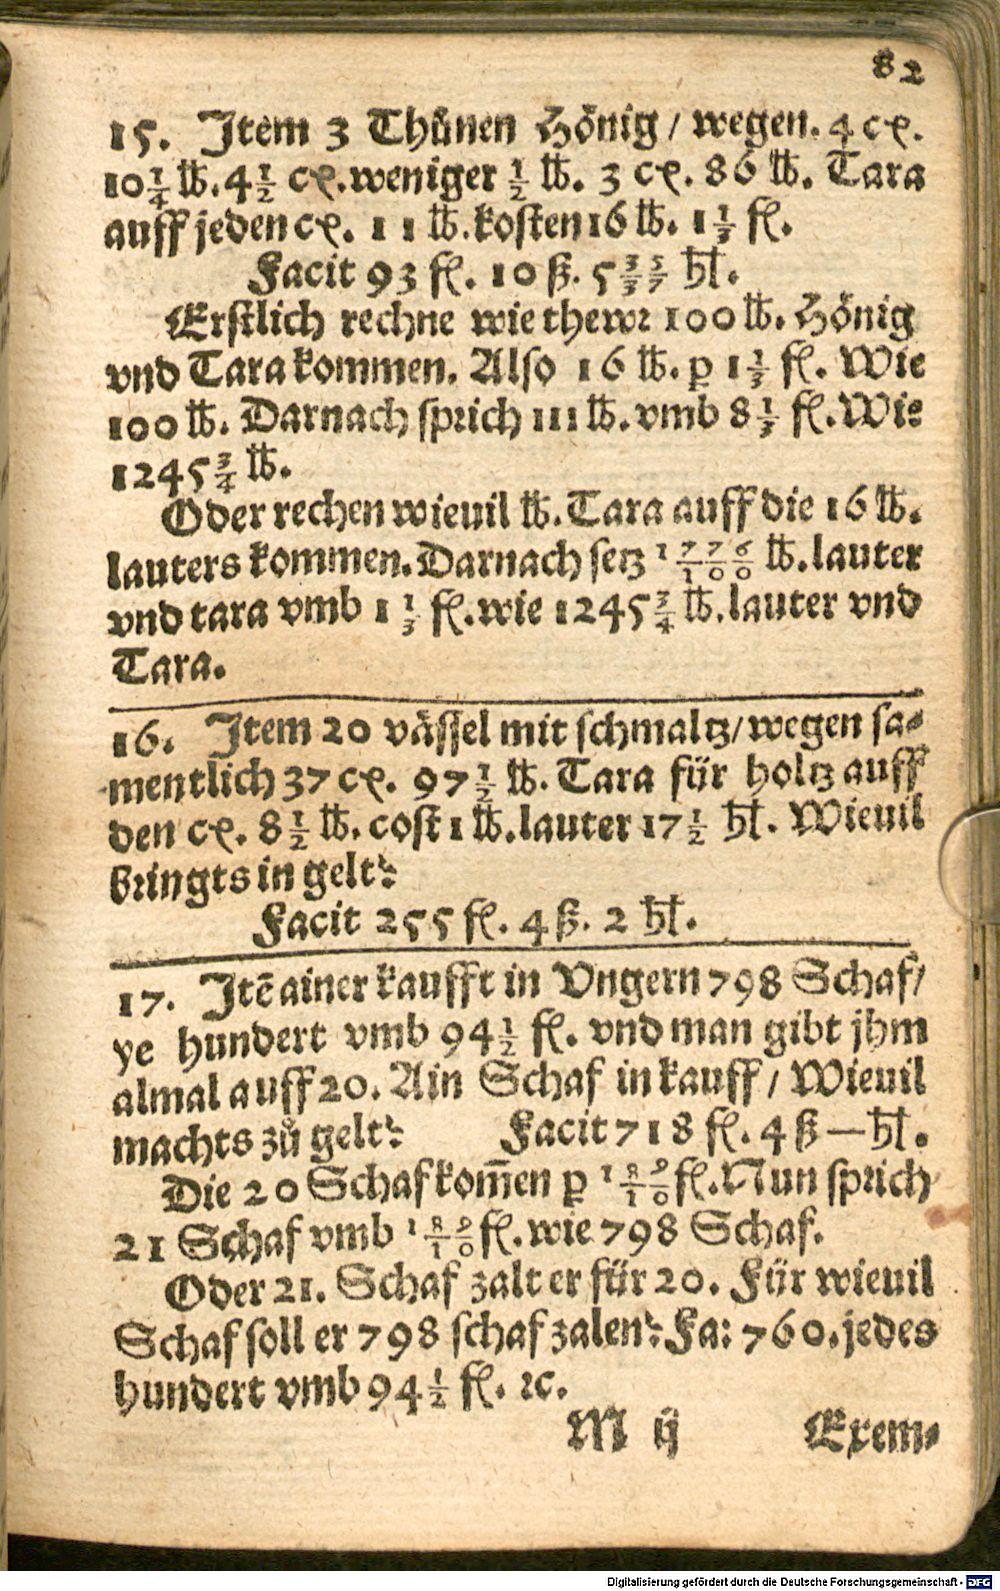 82
15. Item 3 Thůnen Hönig / wegen. 4 cʒ.
10 1/4 ℔. 4 1/2 cʒ. weniger 1/2 ℔. 3 cʒ. 86 ℔. Tara
auff jeden cʒ. 11 ℔. kosten 16 ℔. 1 1/3 fl.
Facit 93 fl. 10 ß. 5 33/37 5/7 hl.
Erstlich rechne wie thewr 100 ℔. Hönig
vnd Tara kommen. Also 16 ℔. p 1 1/3 fl. Wie
100 ℔. Darnach sprich 111 ℔. vmb 8 1/3 fl. Wie
1245 3/4 ℔.
Oder rechen wieuil ℔. Tara auff die 16 ℔.
lauters kommen. Darnach setz 1776/100 ℔. lauter
vnd tara vmb 1 1/3 fl. wie 1245 3/4 ℔. lauter vnd
Tara.
16. Item 20 vässel mit schmaltz / wegen sa-
mentlich 37 cʒ. 97 1/2 ℔. Tara für holtz auff
den cʒ. 8 1/2 ℔. cost 1 ℔. lauter 17 1/2 hl. Wieuil
bringts in gelt?
Facit 255 fl. 4 ß. 2 hl.
17. Itē ainer kaufft in Vngern 798 Schaf /
ye hundert vmb 94 1/2 fl. vnd man gibt jhm
almal auff 20. Ain Schaf in kauff / Wieuil
machts zů gelt? Facit 718 fl. 4 ß — hl.
Die 20 Schaf kom̄en p 189/10 fl. Nun sprich
21 Schaf vmb 189/10 fl. wie 798 Schaf.
Oder 21. Schaf zalt er für 20. Für wieuil
Schaf soll er 798 schaf zalen? Fa: 760. jedes
hundert vmb 94 1/2 fl. ꝛc.
M ij Exem-
Digitalisierung gefördert durch die Deutsche Forschungsgemeinschaft - DFG